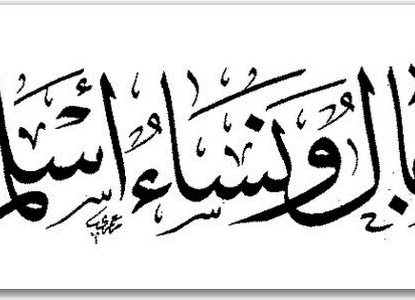 ال ونساء أسلم